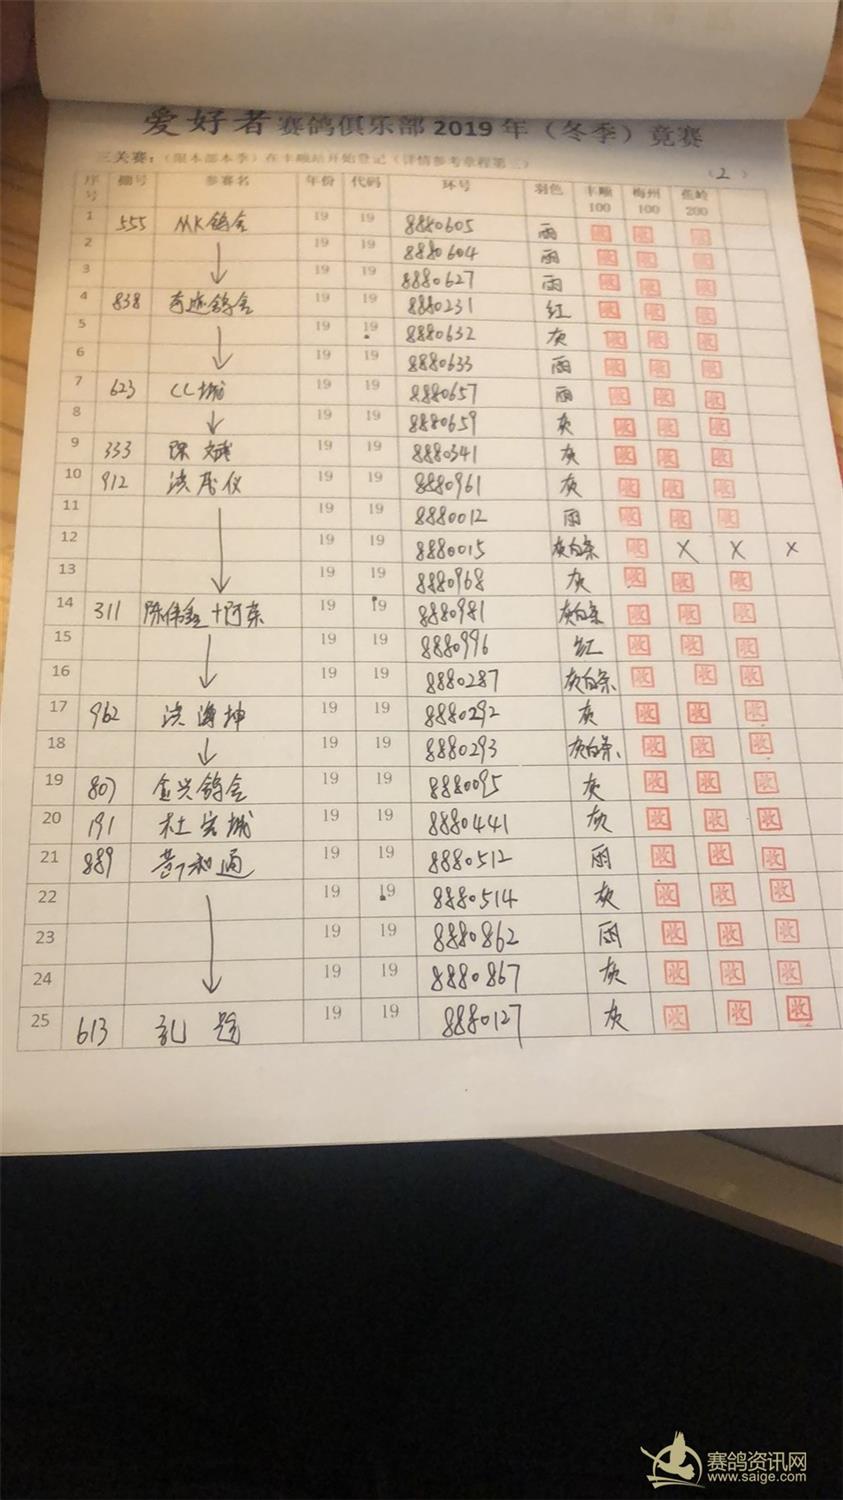 爱好者赛鸽俱乐部2019年（冬季）竞赛
三关赛：（限本部本季）在丰顺站开始登记（详情参考章程第三）
（2）
序号 棚号 参赛名 年份 代码 环号 羽色 丰顺100 梅州100 蕉岭200
1 555 MK鸽舍 19 19 8880605 雨
2 19 19 8880604 雨
3 19 19 8880627 雨
4 838 奇迹鸽舍 19 19 8880231 红
5 19 19 8880632 灰
6 19 19 8880633 雨
7 623 CL城 19 19 8880657 雨 收 收 收
8 19 19 8880659 灰 收 收 收
9 333 陈斌 19 19 8880341 灰 收 收 收
10 912 洪茂仪 19 19 8880961 灰 收 收 收
11 19 19 8880012 雨 收 收 收
12 19 19 8880015 灰白条 收 X X X
13 19 19 8880968 灰 收 收 收
14 311 陈伟鑫+阿荣 19 19 8880981 灰白条 收 收 收
15 19 19 8880996 红 收 收 收
16 19 19 8880287 灰白条 收 收 收
17 962 洪海坤 19 19 8880292 灰 收 收 收
18 19 19 8880293 灰白条 收 收 收
19 807 金兴鸽舍 19 19 8880095 灰 收 收 收
20 191 杜宏城 19 19 8880441 灰 收 收 收
21 889 19 19 8880512 雨 收 收 收
22 19 19 8880514 灰 收 收 收
23 19 19 8880862 雨 收 收 收
24 19 19 8880867 灰 收 收 收
25 613 19 19 8880127 灰 收 收 收
赛鸽资讯网
www.saige.com